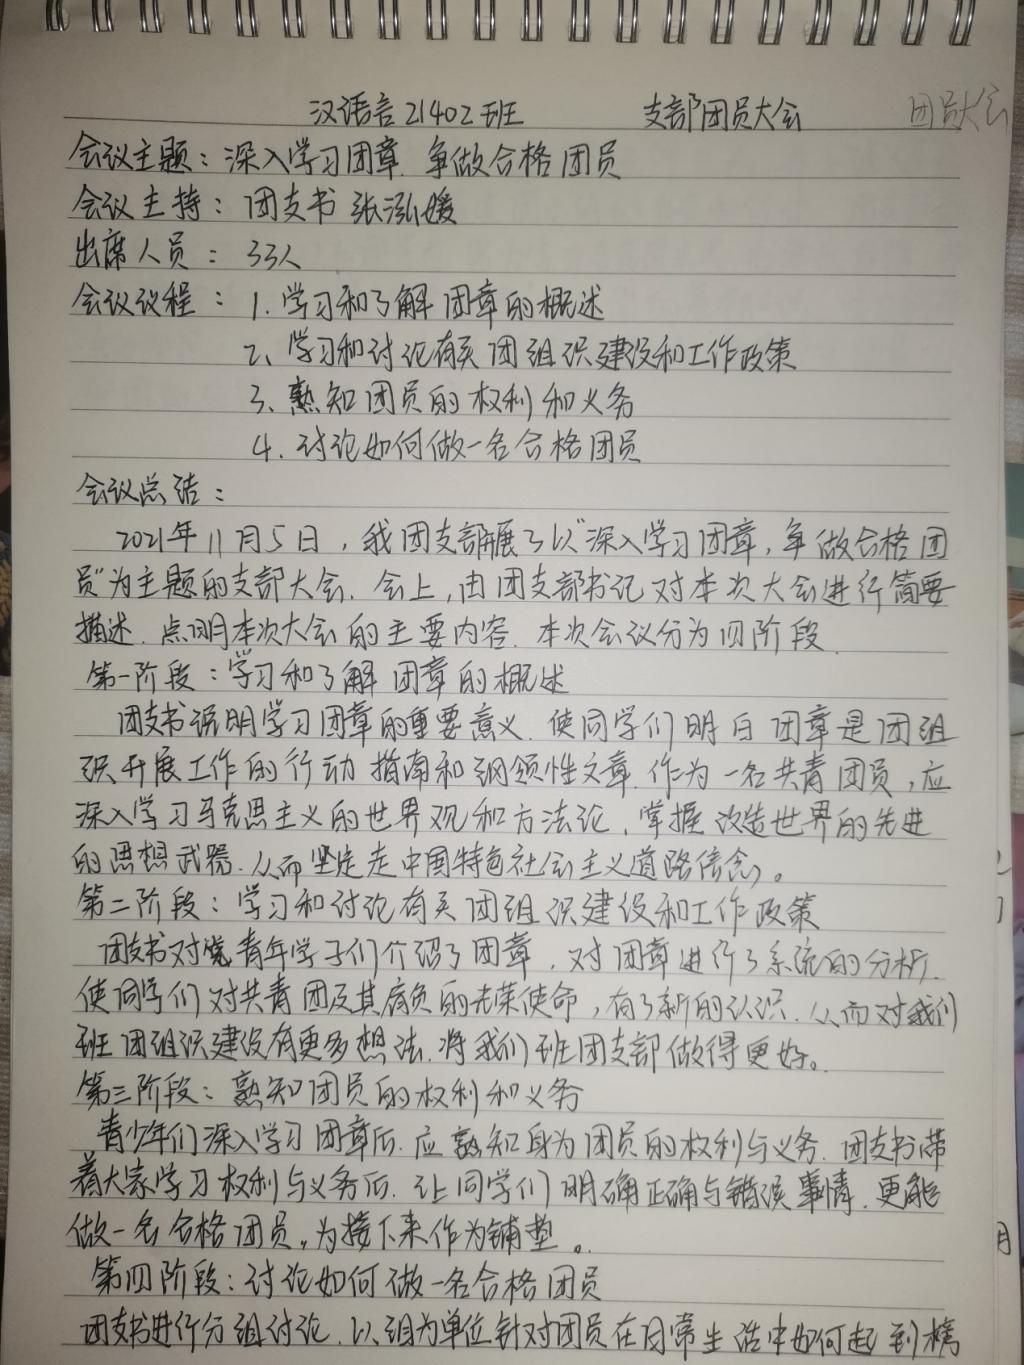 汉语言21402班 支部团员大会 团员大会
会议主题：深入学习团章.争做合格团员
会议主持：团支书 张泓媛
出席人员：33人
会议议程：1.学习和了解团章的概述
2、学习和讨论有关团组织建设和工作政策
3、熟知团员的权利和义务
4.讨论如何做一名合格团员
会议总结：
2021年11月5日，我团支部开展了以“深入学习团章，争做合格团
员”为主题的支部大会.会上，由团支部书记对本次大会进行简要
描述.点明本次大会的主要内容.本次会议分为四阶段.
第一阶段：学习和了解团章的概述
团支书说明学习团章的重要意义.使同学们明白团章是团组
织开展工作的行动指南和纲领性文章.作为一名共青团员，应
深入学习马克思主义的世界观和方法论、掌握改造世界的先进
的思想武器.从而坚定走中国特色社会主义道路信念。
第二阶段：学习和讨论有关团组织建设和工作政策
团支书对青年学子们介绍了团章，对团章进行了系统的分析.
使同学们对共青团及其肩负的光荣使命，有了新的认识.从而对我们
班团组织建设有更多想法.将我们班团支部做得更好。
第三阶段：熟知团员的权利和义务
青少年们深入学习团章后.应熟知身为团员的权利与义务.团支书带
着大家学习权利与义务后.让同学们明确正确与错误事情.更能
做一名合格团员。为接下来作为铺垫。
第四阶段：讨论如何做一名合格团员
团支书进行分组讨论.以组为单位针对团员在日常生活中如何起到榜
月